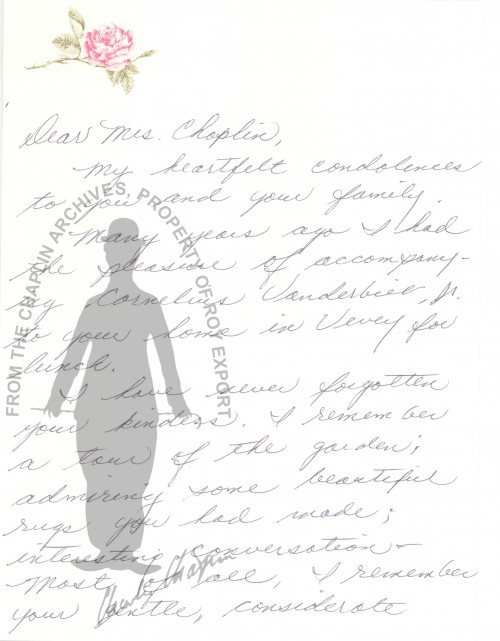 Dear Mrs. Chaplin,
My heartfelt condolences
to you and your family.
Many years ago I had
the pleasure of accompany-
ing Cornelius Vanderbilt, Jr.
to your home in Vevey for
lunch.
I have never forgotten
your kindness. I remember
a tour of the garden;
admiring some beautiful
rugs you had made;
interesting conversation -
Most of all, I remember
your gentle, considerate
FROM THE CHAPLIN ARCHIVES, PROPERTY OF ROY EXPORT
Chaplin